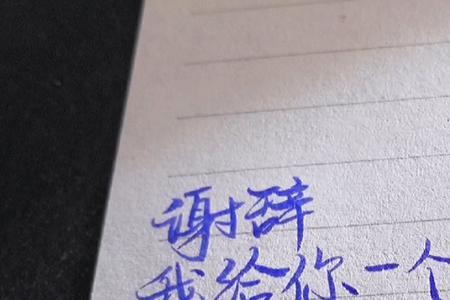 谢辞
我给你一个